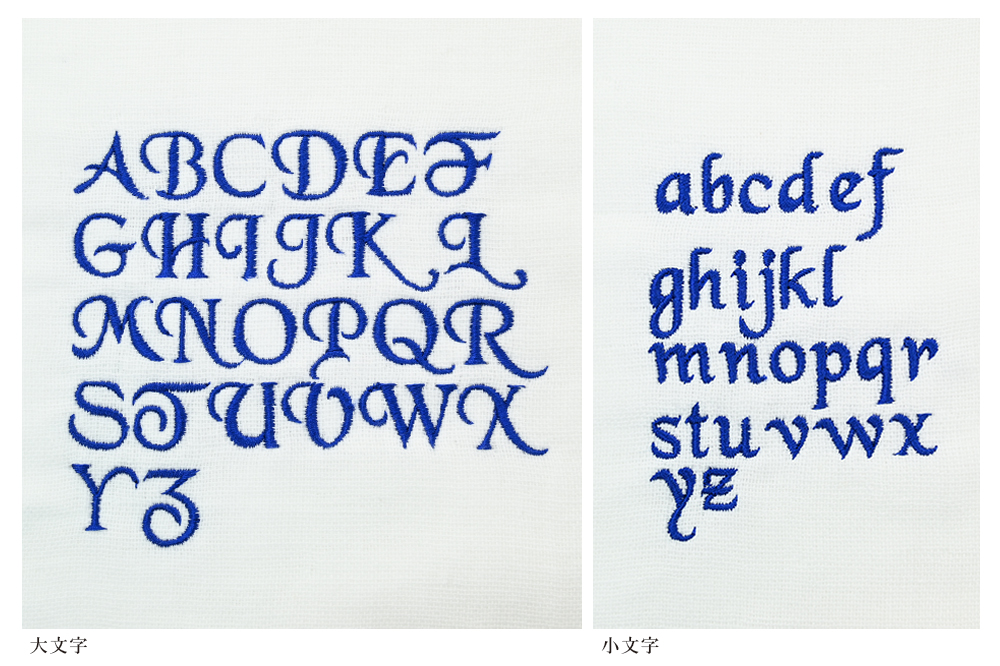 ABCDEF
GHIJK L
MNOPQR
STUVWX
YZ
大文字
abcdef
ghijkl
mnopqr
stuvwx
yz
小文字